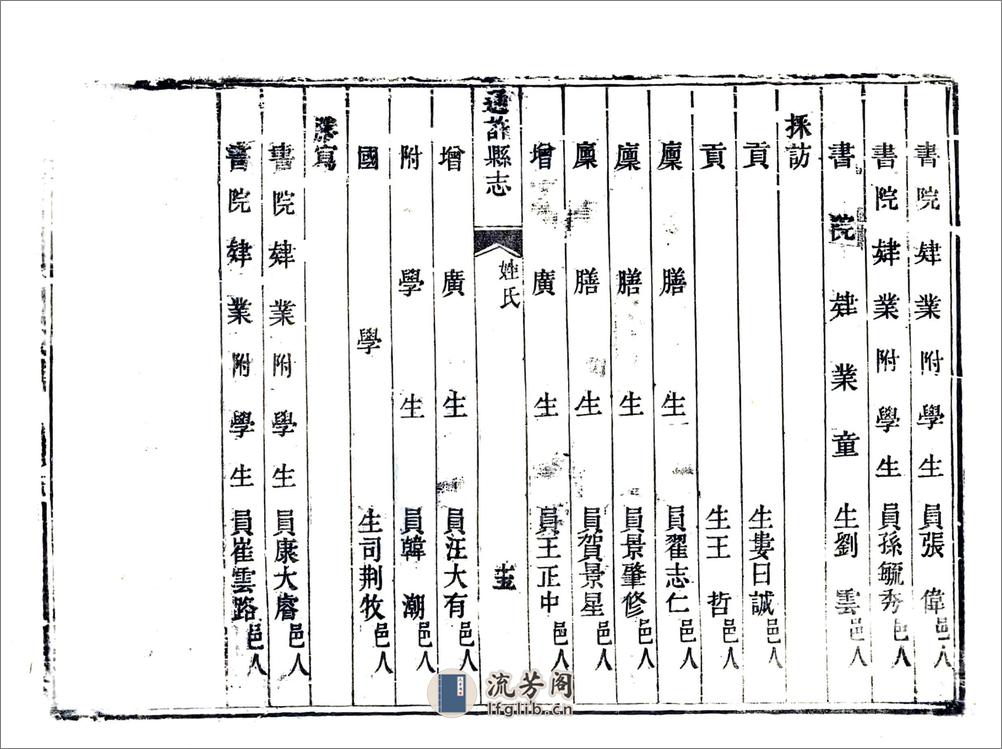 書院肄業附學生員張偉邑人
書院肄業附學生員孫毓秀邑人
書院肄業童生劉雲邑人
採訪
貢生婁曰誠邑人
貢生王哲邑人
廩膳生員翟志仁邑人
廩膳生員景肇修邑人
廩膳生員賀景星邑人
增廣生員王正中邑人
通許縣志
姓氏
增廣生員汪大有邑人
附學生員韓潮邑人
國學生司荆牧邑人
謄寫
書院肄業附學生員康大睿邑人
書院肄業附學生員崔雲路邑人
流芳阁
lfglib.cn